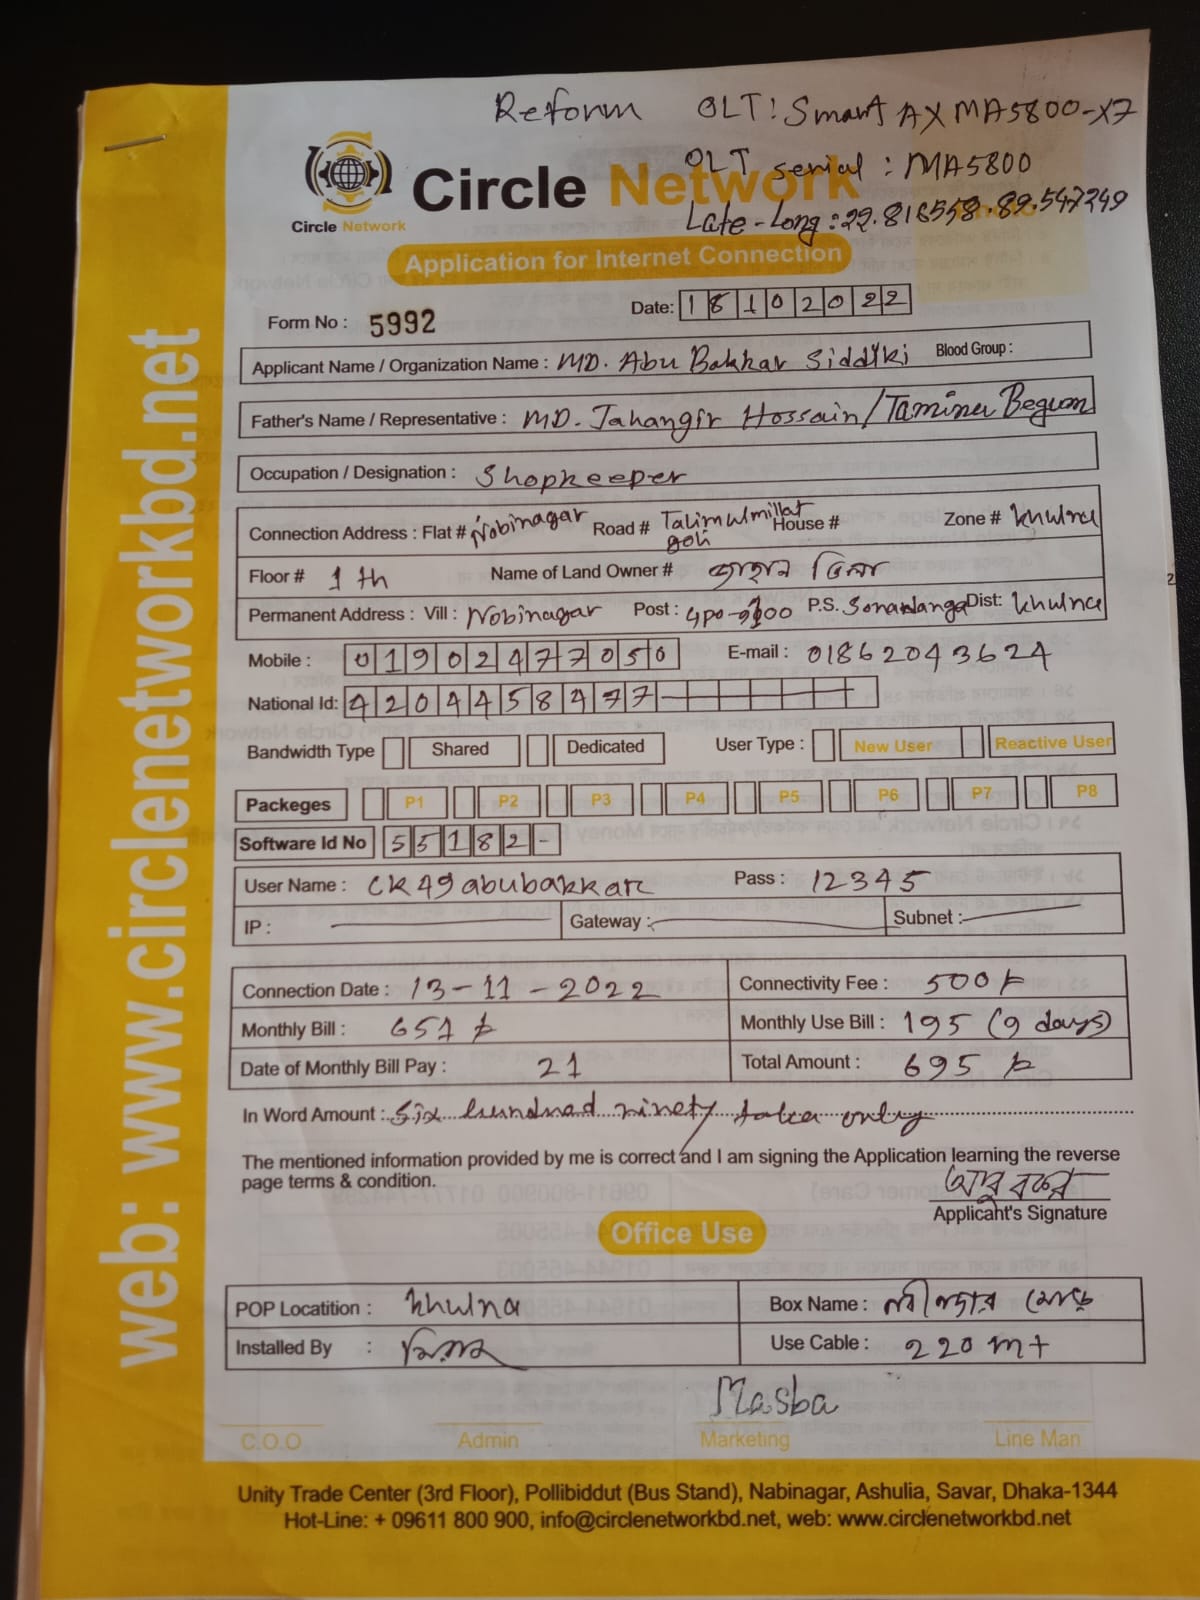 Reform OLT: Smart AX MA5800-X7
OLT serial: MA5800
Late-Long: 22.816558.89.547249
Circle Network
Circle Network
Application for Internet Connection
Form No : 5992 Date: 18102022
Applicant Name / Organization Name : MD. Abu Bakkar Siddiki Blood Group :
Father's Name / Representative : MD. Jahangir Hossain/Tamina Begum
Occupation / Designation : Shopkeeper
Connection Address : Flat # Nobinagar Road # Talimulmillat goli House # Zone # Khulna
Floor # 1 th Name of Land Owner #
Permanent Address : Vill : Nobinagar Post : P.S. Sonadanga Dist: Khulna
Mobile : 01902477050 E-mail : 01862043624
National Id: 4204458477
Bandwidth Type Shared Dedicated User Type : New User Reactive User
Packeges P1 P2 P3 P4 P5 P6 P7 P8
Software Id No 55182-
User Name : CK49abubakkar Pass : 12345
IP : Gateway : Subnet :
Connection Date : 13-11-2022 Connectivity Fee : 500/-
Monthly Bill : 651/- Monthly Use Bill : 195 (9 days)
Date of Monthly Bill Pay : 21 Total Amount : 695/-
In Word Amount : Six hundred ninety taka only
The mentioned information provided by me is correct and I am signing the Application learning the reverse
page terms & condition.
Applicant's Signature
Office Use
POP Locatition : Khulna Box Name :
Installed By : Use Cable : 220 mt
Masba
C.O.O Admin Marketing Line Man
Unity Trade Center (3rd Floor), Pollibiddut (Bus Stand), Nabinagar, Ashulia, Savar, Dhaka-1344
Hot-Line: + 09611 800 900, info@circlenetworkbd.net, web: www.circlenetworkbd.net
web: www.circlenetworkbd.net